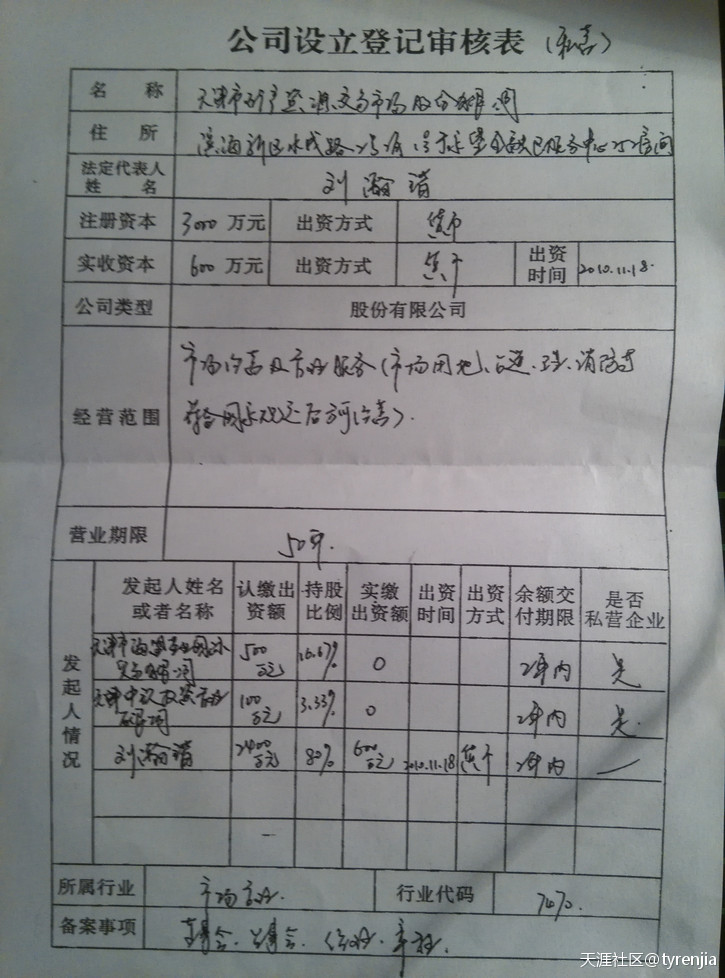 公司设立登记审核表（私营）
名 称 天津市矿产资源交易市场股份有限公司
住 所 滨海新区
法定代表人姓 名 刘瀚锴
注册资本 3000 万元 出资方式 货币
实收资本 600 万元 出资方式 货币 出资时间 2010.11.18.
公司类型 股份有限公司
经营范围 市场经营及管理服务（市场用地、交通、卫生、消防等
符合国家规定后方可经营）.
营业期限 50年.
发起人情况
发起人姓名或者名称 认缴出资额 持股比例 实缴出资额 出资时间 出资方式 余额交付期限 是否私营企业
500万元 16.67% 0 2年内 是
100万元 3.33% 0 2年内 是
刘瀚锴 2400万元 80% 600万元 2010.11.18 货币 2年内 —
所属行业 市场管理. 行业代码 7470.
备案事项 董事会、监事会、经理、章程.
天涯社区@tyrenjia